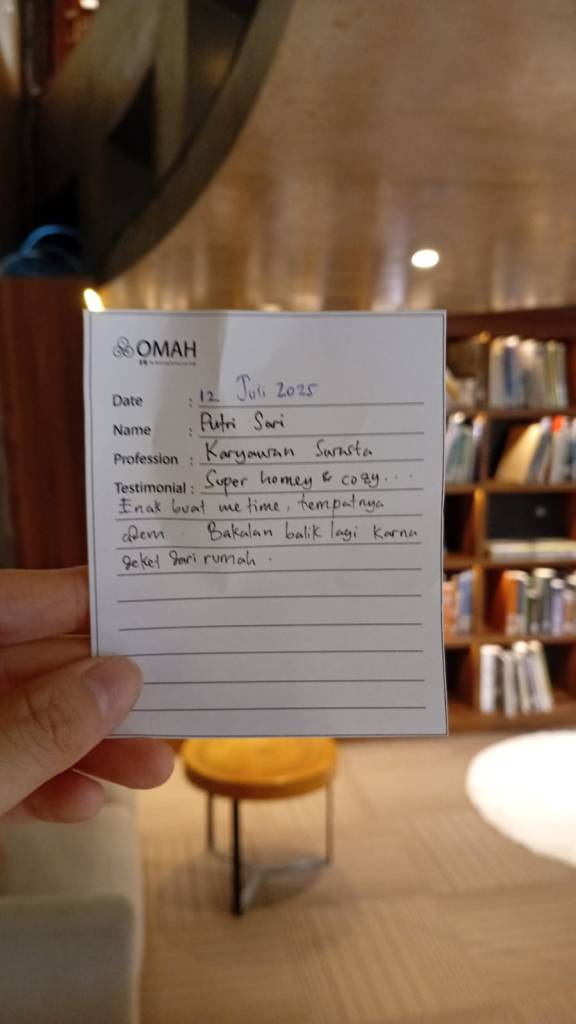 OMAH
Date : 12 Juli 2025
Name : Putri Sari
Profession : Karyawan Swasta
Testimonial : Super homey & cozy...
Enak buat me time, tempatnya
adem. Bakalan balik lagi karna
deket dari rumah.